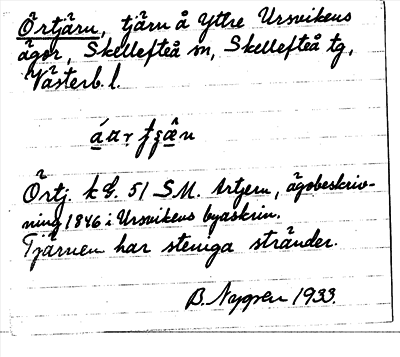 Örtjärn, tjärn å Yttre Ursvikens
ägor, Skellefteå sn, Skellefteå tg,
Västerb. l.
Örtj. k G. 51 S.M. Artjern, ägobeskriv-
ning 1846 i Ursvikens byaskrin.
Tjärnen har steniga stränder.
B. Nygren 1933.